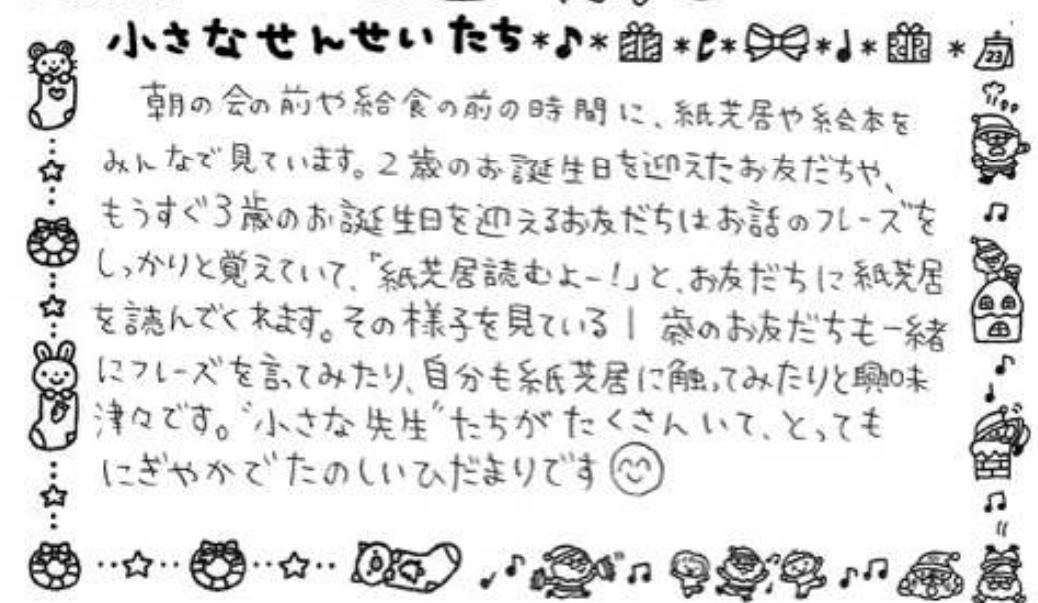 小さなせんせいたち
23
朝の会の前や給食の前の時間に、紙芝居や絵本を
みんなで見ています。2歳のお誕生日を迎えたお友だちや、
もうすぐ3歳のお誕生日を迎えるお友だちはお話のフレーズを
しっかりと覚えていて、「紙芝居読むよー!」と、お友だちに紙芝居
を読んでくれます。その様子を見ている1歳のお友だちも一緒
にフレーズを言ってみたり、自分も紙芝居に触ってみたりと興味
津々です。“小さな先生”たちがたくさんいて、とっても
にぎやかでたのしいひだまりです